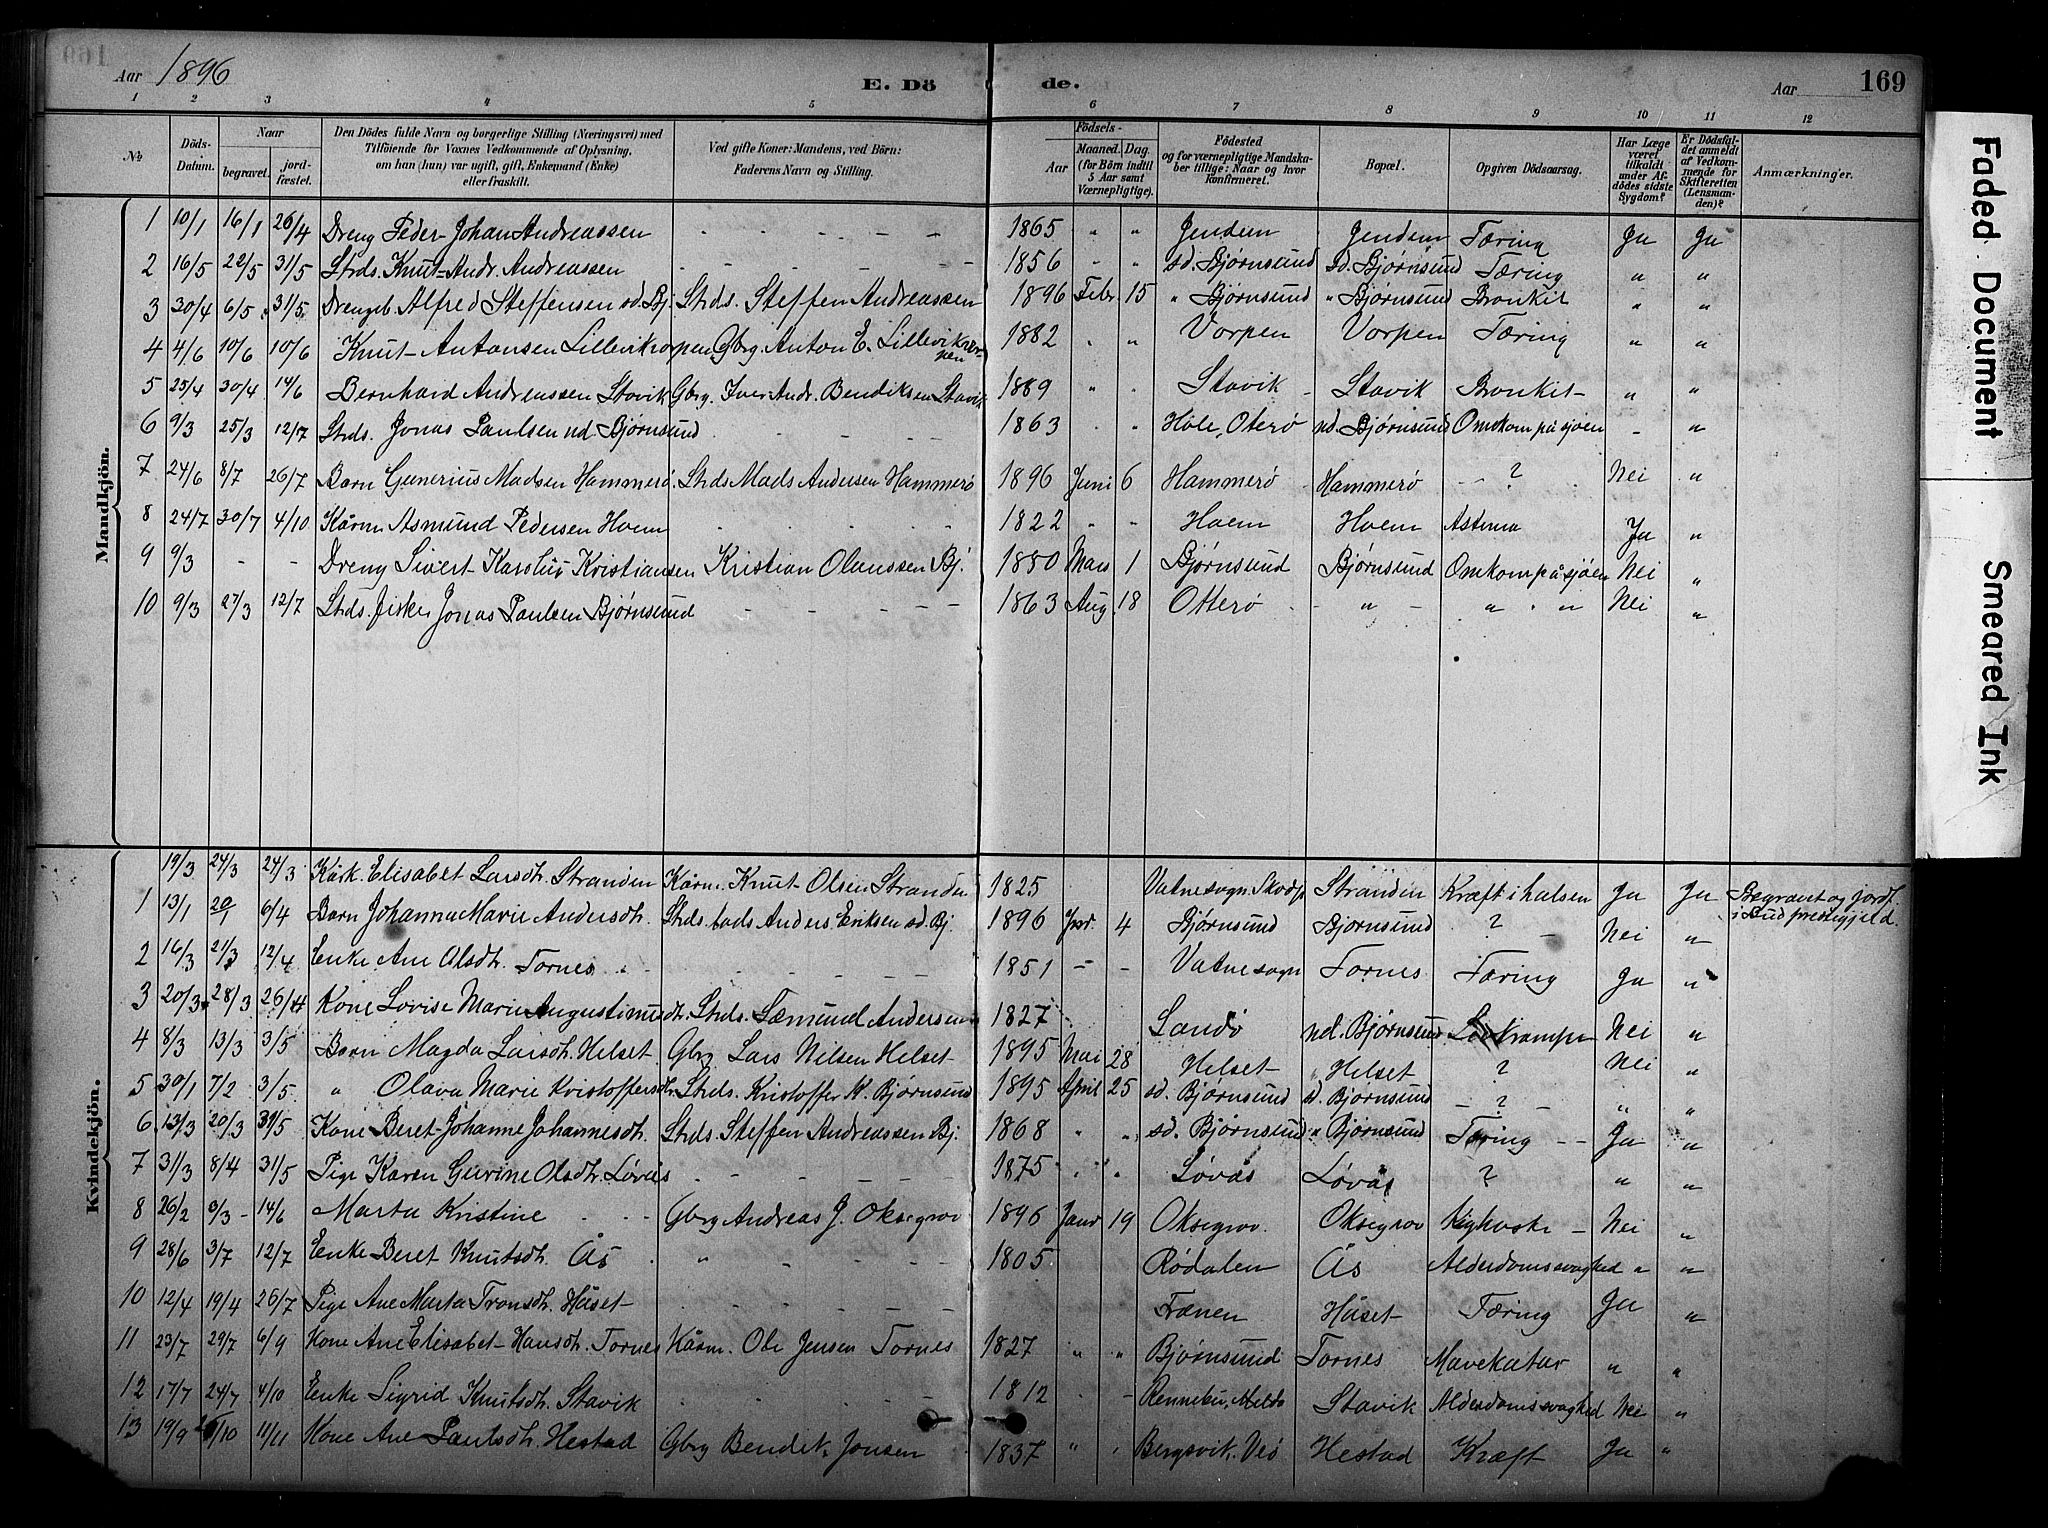 169
Aar 1896 E. Dö de. Aar 169
1 2 3 4 5 6 7 8 9 10 11 12
№ Döds-Datum. Naar begravet. jord-fæstet. Den Dödes fulde Navn og borgerlige Stilling (Næringsvei) med Tilföiende for Voxnes Vedkommende af Oplysning, om han (hun) var ugift, gift, Enkemand (Enke) eller fraskilt. Ved gifte Koner: Mandens, ved Börn: Faderens Navn og Stilling. Födsels- Aar Maaned. Dag. (for Börn indtil 5 Aar samt Værnepligtige). Födested og for værnepligtige Mandska-ber tillige: Naar og hvor konfirmeret. Bopæl. Opgiven Dödsaarsag. Har Læge været tilkaldt under Af-dödes sidste Sygdom? Er Dödsfal-det anmeldt af Vedkom-mende for Skifteretten (Lensman-den)? Anmærkninger.
Mandkjön.
1 10/1 16/1 26/4 Dreng Peder Johan Andreassen - - - - - 1865 " " Jendem Jendem Tæring Ja Ja
2 16/5 22/5 31/5 Strds. Knut Andr. Andreassen - - - - - 1856 " " sd. Bjørnsund sd. Bjørnsund Tæring " "
3 30/4 6/5 31/5 Drengeb. Alfred Steffensen sd. Bj. Strds. Steffen Andreassen 1896 Febr. 15 " Bjørnsund " Bjørnsund Bronkit " "
4 4/6 10/6 10/6 Knut Antonsen Lillevikvorpen Gbrg Anton E. Lillevikvorpen 1882 " " Vorpen Vorpen Tæring " "
5 25/4 30/4 14/6 Bernhard Andreassen Stavik Gbrg. Iver Andr. Bendiksen Stavik 1889 " " Stavik Stavik Bronkit - " "
6 9/3 25/3 12/7 Strds. Jonas Paulsen nd. Bjørnsund - - - - 1863 " " Hole, Oterø nd. Bjørnsund Omkom på sjøen - "
7 24/6 8/7 26/7 Barn Gunerius Madsen Hammerø Strds Mads Andersen Hammerø 1896 Juni 6 Hammerø Hammerø - ? Nei "
8 24/7 30/7 4/10 Kårm Asmund Pedersen Hoem - - - - 1822 " " Hoem Hoem Astma Ja "
9 9/3 - - Dreng Sivert Karolus Kristiansen Kristian Olaussen Bj. 1880 Mars 1 Bjørnsund Bjørnsund Omkom på sjøen Nei "
10 9/3 27/3 12/7 Strds. fisker Jonas Paulsen Bjørnsund - - - - 1863 Aug. 18 Otterø - " - " " " Nei "
Kvindekjön.
19/3 24/3 24/3 Kårk. Elisabet Larsdtr. Stranden Kårm. Knut Olsen Stranden 1825 Vatne sogn, Skodje Stranden Kræft i halsen Ja Ja Begravet og jordf. i Bud prestegjeld.
1 13/1 20/1 6/4 Barn Johanna Marie Andersdtr. Strds. Anders Eriksen sd. Bj. 1896 Jan. 4 Bjørnsund Bjørnsund ? - Nei "
2 16/3 21/3 12/4 Enke Ane Olsdtr. Tornes - - - - 1851 - - Vatne sogn Tornes Tæring Ja "
3 20/3 28/3 26/4 Kone Lovise Marie Augustinusdtr. Strds. Sæmund Andersen 1827 " Sandø nd. Bjørnsund Nei "
4 8/3 13/3 3/5 Barn Magda Larsdtr. Helset Gbrg Lars Nilsen Helset 1895 Mai 28 Helset " Helset ? Nei "
5 30/1 7/2 3/5 " Olava Marie Kristoffersdtr. Strds. Kristoffer K. Bjørnsund 1895 April 25 sd. Bjørnsund sd. Bjørnsund - ? - " "
6 13/3 20/3 31/5 Kone Beret Johanne Johannesdtr. Strds Steffen Andreassen Bj. 1868 " " sd. Bjørnsund " Bjørnsund Tæring - - Ja "
7 31/3 8/4 31/5 Pige Karen Gurine Olsdtr. Løvås - - - - 1875 " " Løvås Løvås ? " "
8 26/2 9/3 - 14/6 Marta Kristine Gbrg Andreas J. Oksegrov 1896 Janr 19 Oksegrov. Oksegrov Kighoste - Nei "
9 28/6 3/7 12/7 Enke Beret Knutsdtr. Ås " - - - 1805 Rødalen Ås Alderdomssvaghed " "
10 12/4 19/4 26/7 Pige Ane Marta Tronsdtr. Håset - - - - Frænen Håset Tæring Ja "
11 23/7 29/7 6/9 Kone Ane Elisabet Hansdtr. Tornes Kårm. Ole Jensen Tornes 1827 " " Bjørnsund Tornes Mavekatar " "
12 17/7 24/7 4/10 Enke Sigrid Knutsdtr. Stavik - - - - 1812 - Rennebu, Melda Stavik Alderdomssvaghed Nei "
13 19/9 /10 11/11 Kone Ane Paulsdtr. Hestad Gbrg Bendik Jonsen 1837 " " Bergsvik, Veø Hestad Kræft Ja "
Faded Document Smeared Ink